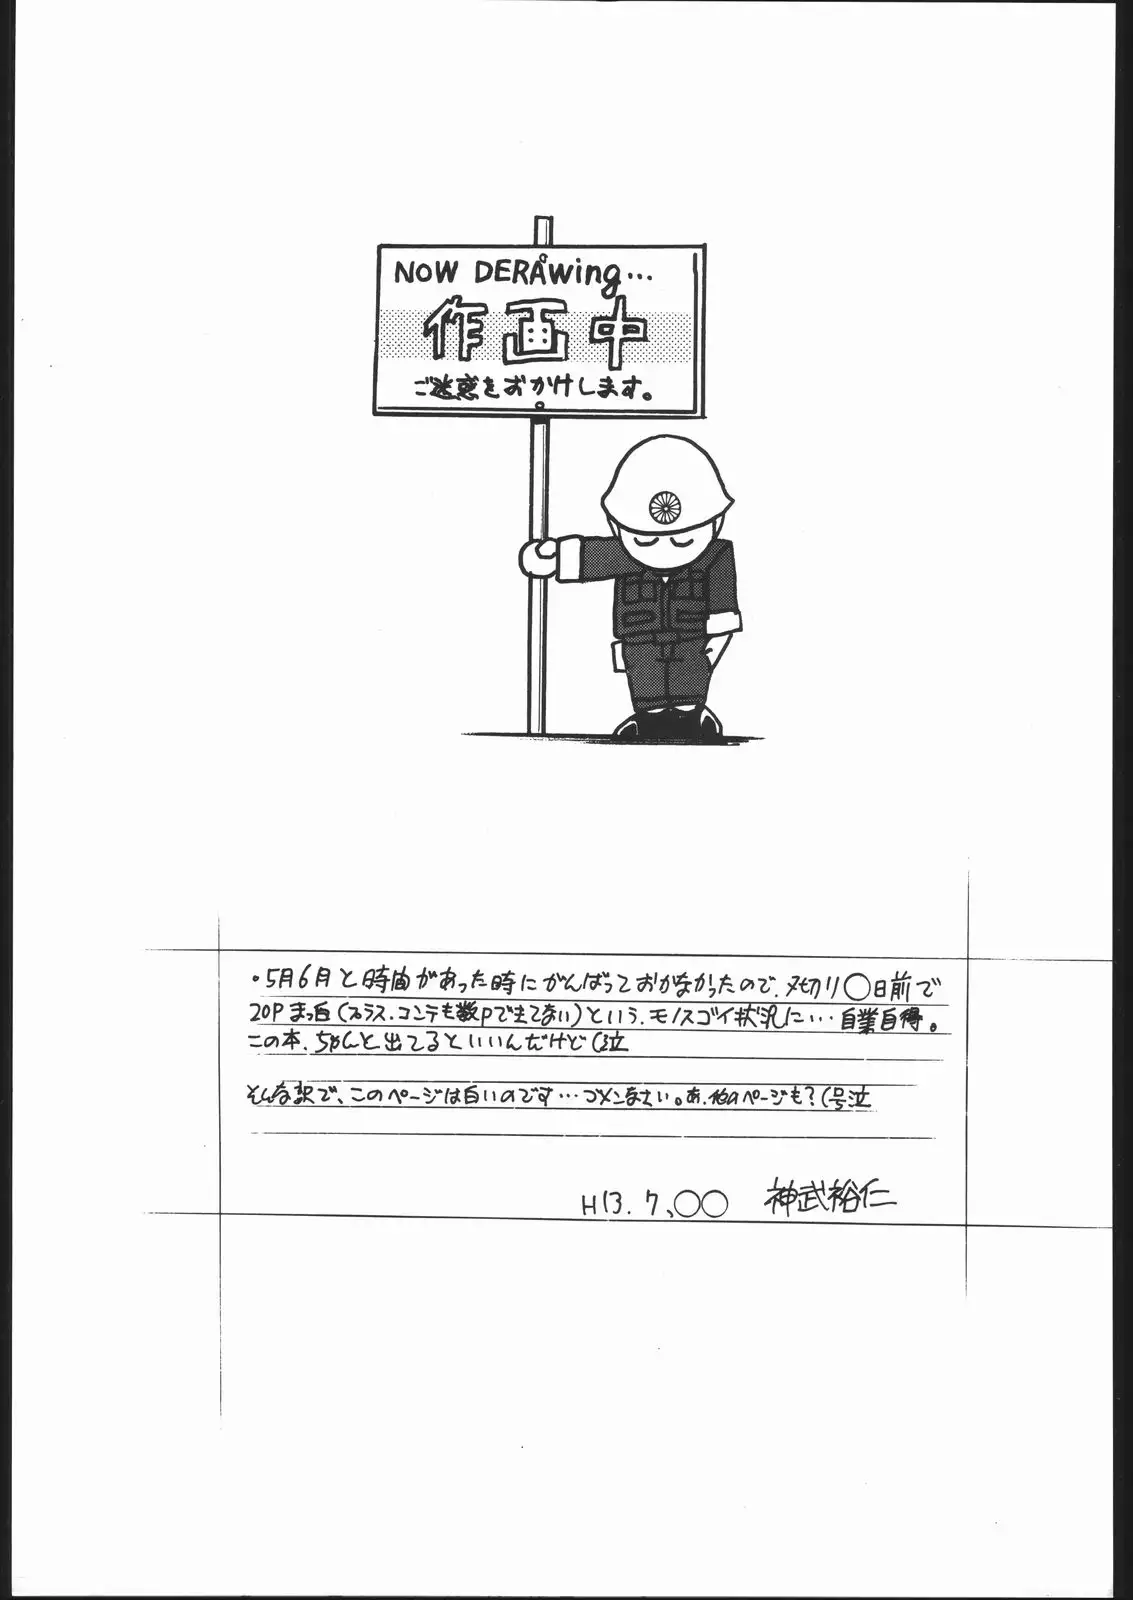 NOW DERAwing…
作画中
ご迷惑をおかけします。
・5月6月と時間があった時にがんばっておかなかったので、〆切り〇日前で
20Pまっ白(プラス、コンテも数Pできてない)という、モノスゴイ状況に…自業自得。
この本、ちゃんと出てるといいんだけど(泣
そんな訳で、このページは白いのです…ゴメンなさい。あ、他のページも?(号泣
H13.7、〇〇 神武裕仁